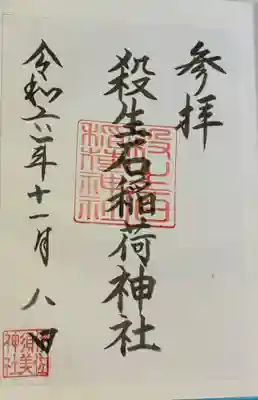 参拝
殺生石稲荷神社
令和六年十一月八日
須美
神社